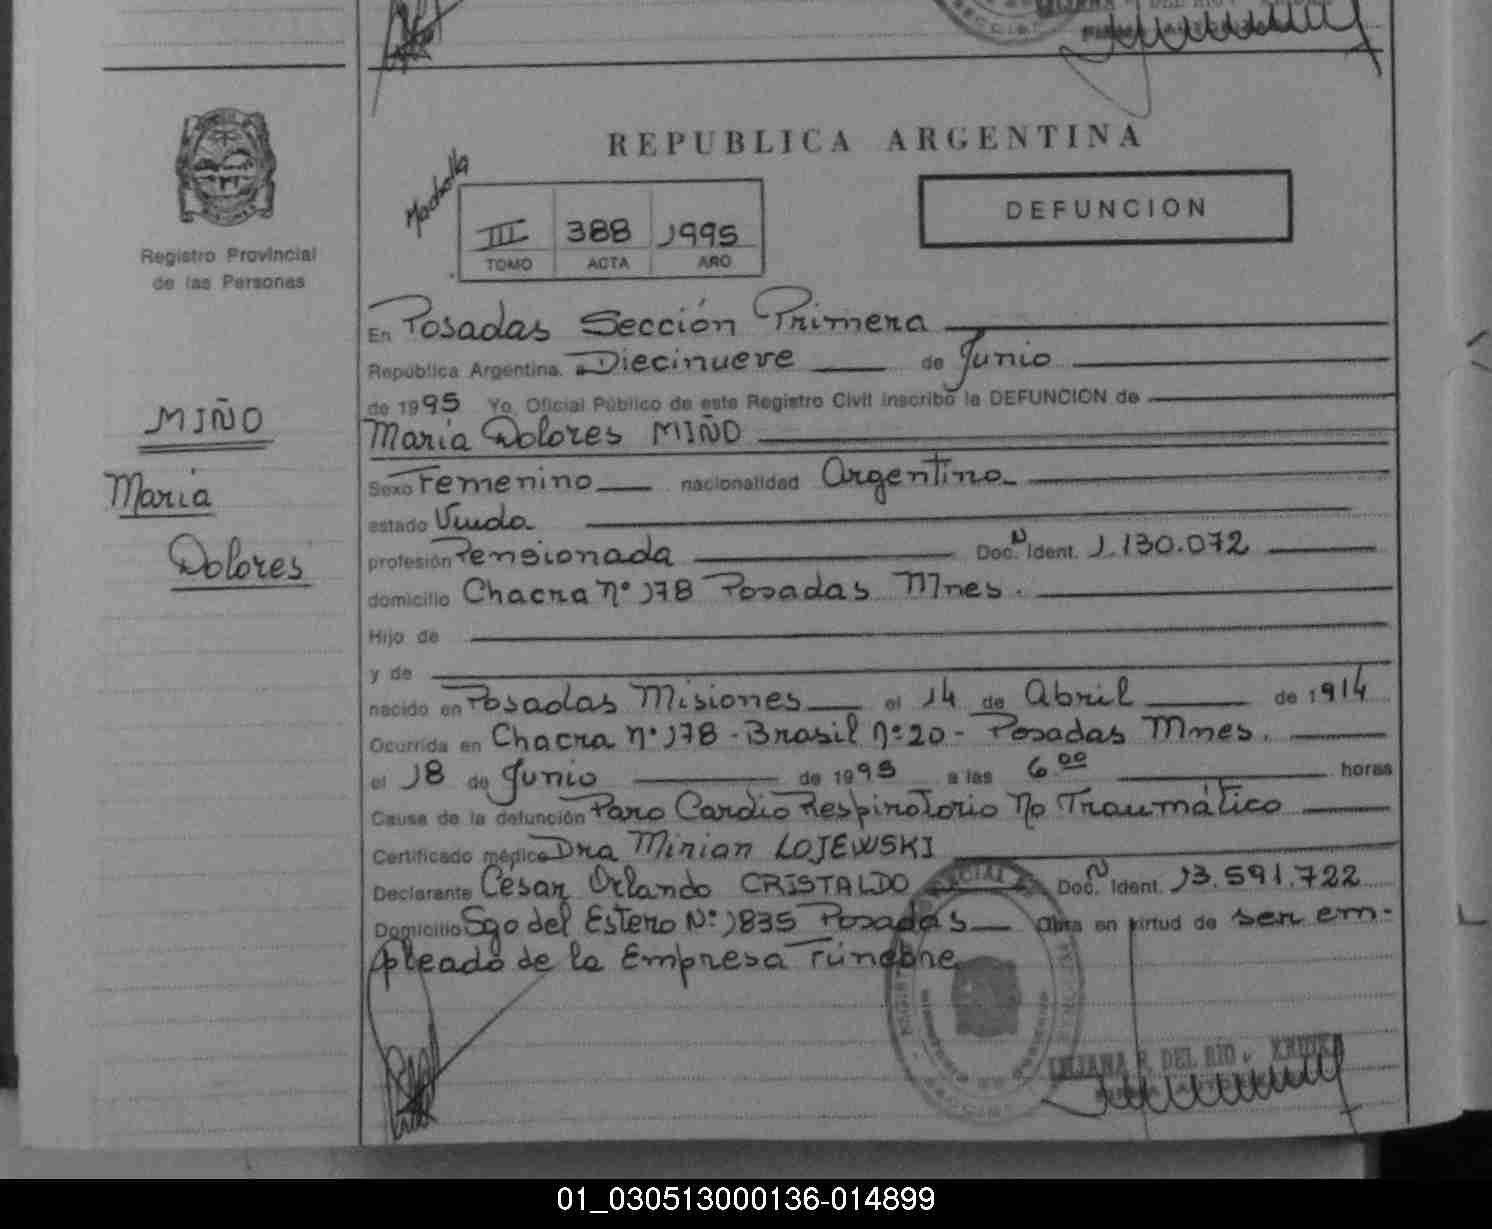 REPUBLICA ARGENTINA
DEFUNCION
III 388 1995
TOMO ACTA AÑO
Registro Provincial
de las Personas
MIÑO
Maria
Dolores
En Posadas Sección Primera
República Argentina. a Diecinueve de Junio
de 1995 Yo, Oficial Público de este Registro Civil inscribo la DEFUNCION de
Maria Dolores MIÑO
Sexo Femenino nacionalidad Argentina
estado Viuda
profesión Pensionada Doc. N Ident. 1.130.072
domicilio Chacra Nº 178 Posadas Mnes.
Hijo de
y de
nacido en Posadas Misiones el 14 de Abril de 1914
Ocurrida en Chacra nº 178 - Brasil nº 20 - Posadas Mnes.
el 18 de Junio de 1995 a las 6.00 horas
Causa de la defunción Paro Cardio Respiratorio No Traumático
Certificado médico Dra Mirian LOJEWSKI
Declarante César Orlando CRISTALDO Doc. N Ident. 13.591.722
Domicilio Sgo del Estero Nº 1835 Posadas Obra en virtud de ser em-
pleado de la Empresa Fúnebre
LILIANA R. DEL RIO
01_030513000136-014899